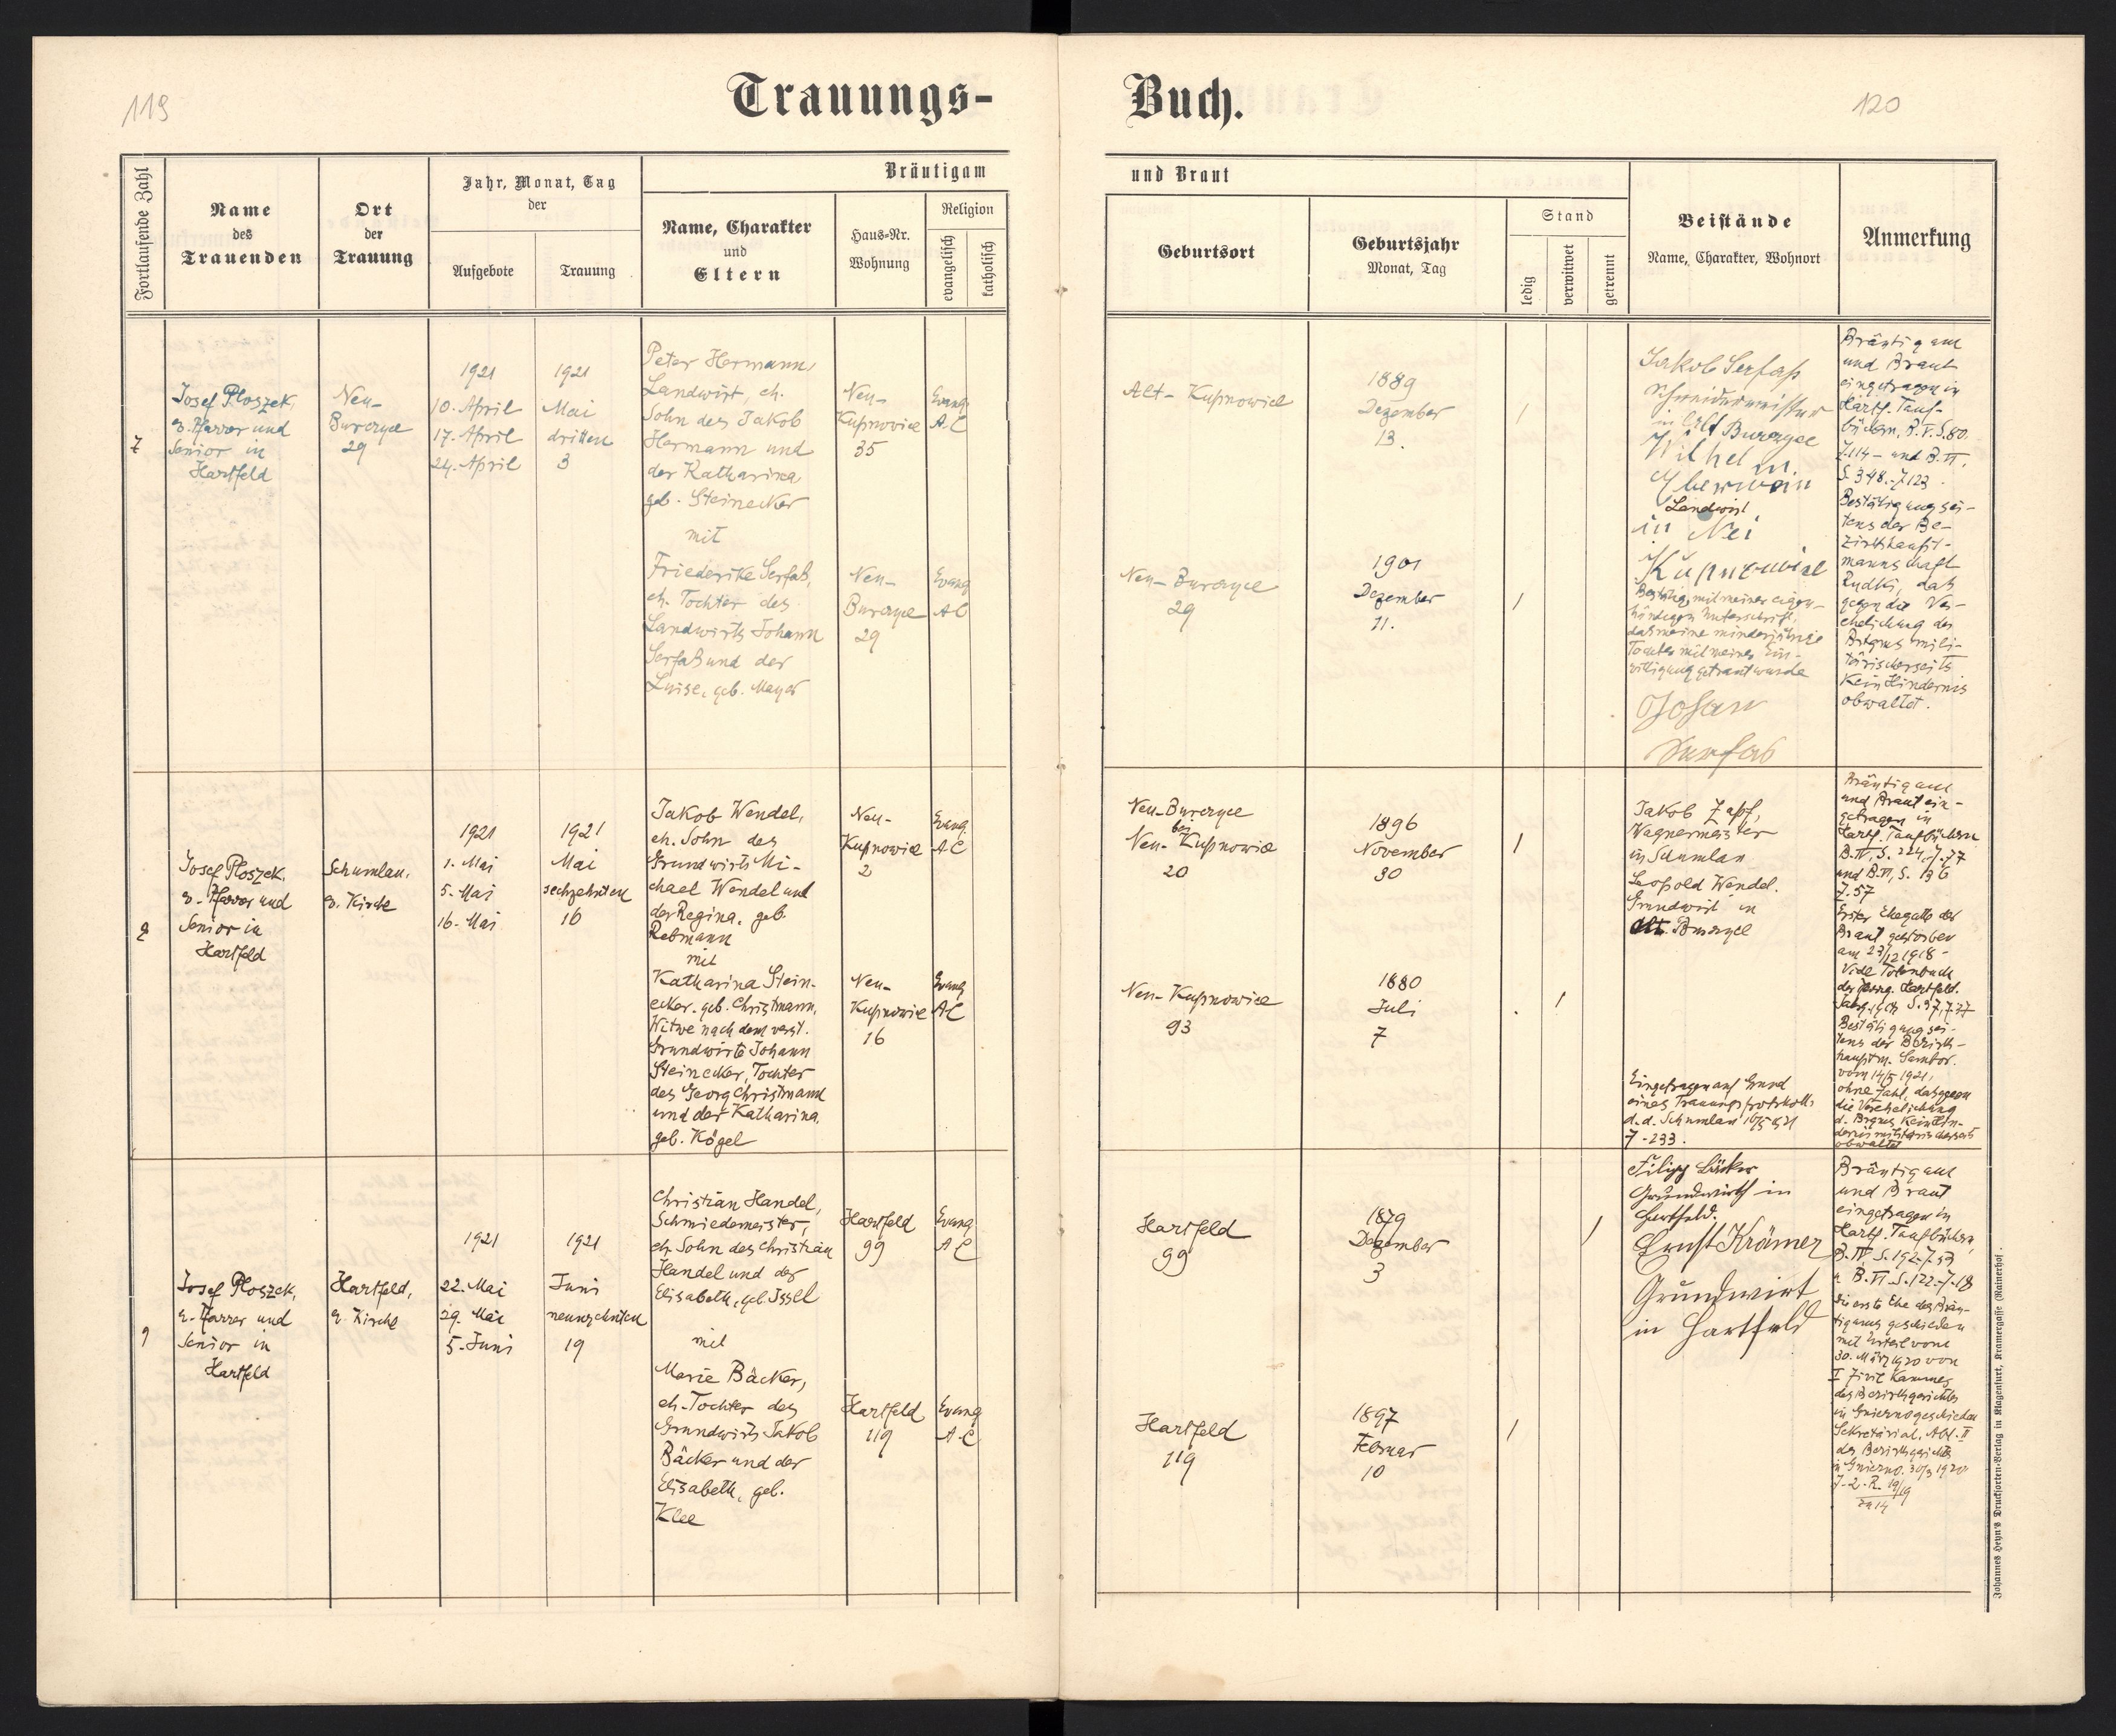 119
Trauungs-
Buch.
120
Fortlaufende Zahl
Name
des
Trauenden
Ort
der
Trauung
Jahr, Monat, Tag
der
Aufgebote
Trauung
Bräutigam
Name, Charakter
und
Eltern
Haus-Nr.
Wohnung
Religion
evangelisch
katholisch
und Braut
Geburtsort
Geburtsjahr
Monat, Tag
Stand
ledig
verwitwet
getrennt
Beistände
Name, Charakter, Wohnort
Anmerkung
7
Josef Ploszek,
e. Pfarrer und
Senior in
Hartfeld
Neu-
Burczyce
29
1921
10. April
17. April
24. April
1921
Mai
dritten
3
Peter Hermann,
Landwirt, eh.
Sohn des Jakob
Hermann und
der Katharina
geb. Steinecker
mit
Friederike Serfaß,
eh. Tochter des
Landwirts Johann
Serfaß und der
Luise, geb. Mayer
Neu-
Kupnovice
35
Evang
A.C
Neu-
Burczyce
29
Evang
AC
Alt-Kupnowice
1889
Dezember
13.
Neu-Burczyce
29
1901
Dezember
11.
Jakob Serfaß
Schneidermeister
in Alt Burczyce
Wilhelm
Eberwein
Landwirt
in Nei
Kupnowice
Bestätige mit meiner eigen-
händigen Unterschrift,
daß meine minderjährige
Tochter mit meiner Ein-
willigung getraut wurde
Johan
Serfas
Bräutigam
und Braut
eingetragen in
Hartf. Tauf-
büchern, B.V. S.80.
Z.114 - und B.VI,
S.348.-Z.123.
Bestätigung sei-
tens der Be-
zirkshaupt-
mannschaft
Rudki, daß
gegen die Ver-
ehelichung des
Brtgms mili-
tärischerseits
kein Hindernis
obwaltet.
8
Josef Ploszek,
e. Pfarrer und
Senior in
Hartfeld
Schumlau,
e. Kirche
1921
1. Mai
5. Mai
16. Mai
1921
Mai
sechzehnten
16
Jakob Wendel,
eh. Sohn des
Grundwirts Mi-
chael Wendel und
der Regina, geb.
Rebmann
mit
Katharina Stein-
ecker, geb. Christmann,
Witwe nach dem verst.
Grundwirte Johann
Steinecker, Tochter
des Georg Christmann
und der Katharina,
geb. Kögel
Neu-
Kupnowice
2
Evang
AC
Neu-
Kupnowice
16
Evang
AC
Neu-Burczyce
bei
Neu-Kupnowice
20
1896
November
30
Neu-Kupnowice
93
1880
Juli
7
Jakob Zapf,
Wagnermeister
in Schumlau
Leopold Wendel.
Grundwirt in
Alt. Burczyce
Eingetragen auf Grund
eines Trauungsprotokolls
d.d. Schumlau 16/5 1921
Z-233.
Bräutigam
und Braut ein-
getragen in
Hartf. Taufbüchern
B.IV, S. 224.-Z.77
und B.VI, S. 136
Z.57
Erster Ehegatte der
Braut gestorben
am 23/12 1918-
Vide Totenbuch
der Hartfeld.
Bestätigung sei-
tens der Bezirks-
hauptm. Sambor.
vom 14/5 1921,
ohne Zahl, daß gegen
die Verehelichung
d. Brgms kein Hin-
dernis militärischerseits
obwaltet
9
Josef Ploszek,
e. Pfarrer und
Senior in
Hartfeld
Hartfeld,
e. Kirche
1921
22. Mai
29. Mai
5. Juni
1921
Juni
neunzehnten
19
Christian Handel,
Schmiedemeister,
eh. Sohn des Christian
Handel und der
Elisabeth, geb. Issel
mit
Marie Bäcker,
eh. Tochter des
Grundwirts Jakob
Bäcker und der
Elisabeth, geb.
Klee
Hartfeld
99
Evang
A C
Hartfeld
119
Evang
A.C
Hartfeld
99
1879
Dezember
3
Hartfeld
119
1897
Februar
10
Filipp Bäcker
Grundwirth in
Hartfeld.
Ernst Krämer
Grundwirt
in Hartfeld
Bräutigam
und Braut
eingetragen in
Hartf. Taufbüchern,
B.IV. S.192.-Z.53
u B.VI.-S.122.-Z.18
Die erste Ehe des Bräu-
tigams geschieden
mit Urteil vom
30. März 1920 von
I Zivil Kammer
des Bezirksgerichtes
in Gniezno geschieden
Sekretariat, Abt. II
des Bezirksgerichts
in Gniezno. 30/3 1920
Z-2-R. 19/19
2914
Johannes Heyn's Drucksorten-Verlag in Klagenfurt, Kramergasse (Rainerhof).